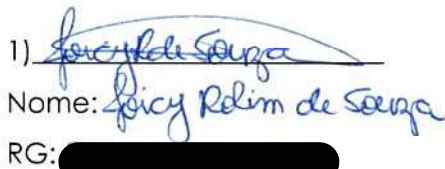 1) Joicy R de Souza
Nome: Joicy Rolim de Souza
RG: